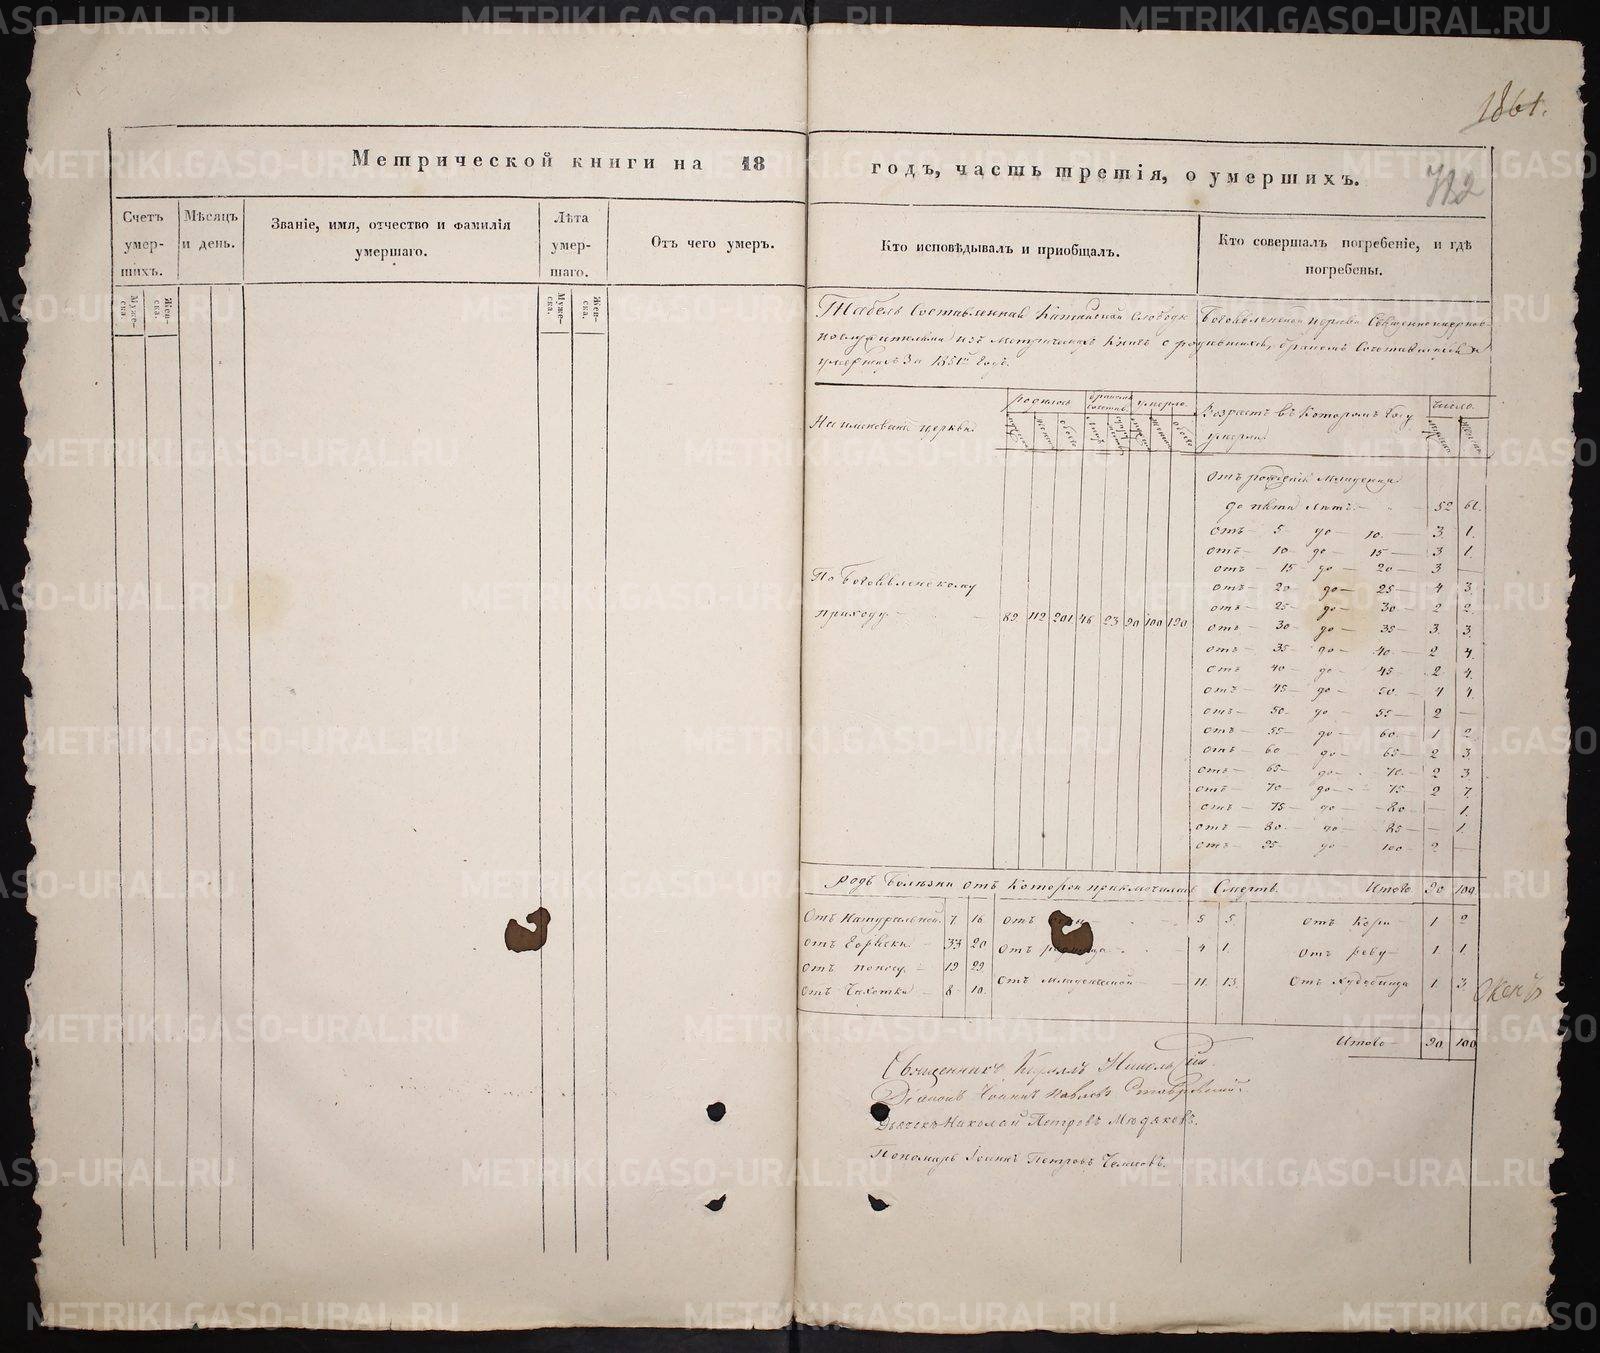 1861.
Метрической книги на 18 годъ, часть третія, о умершихъ.
712
Счетъ умер-шихъ.
Мѣсяцъ и день.
Званіе, имя, отчество и фамилія умершаго.
Лѣта умер-шаго.
Отъ чего умеръ.
Кто исповѣдывалъ и пріобщалъ.
Кто совершалъ погребеніе, и гдѣ погребены.
Муже-ска.
Жен-ска.
Муже-ска.
Жен-ска.
Табель Составленная Катайской Слободы Богоявленской церкви Священноцерковно-
служителями изъ Метрическихъ Книгъ о родившихся, бракомъ Сочетавшихся и
умершихъ За 1851й Годъ.
Наименованіе церкви
родилось
бракомъ сочетав.
умерло.
Возрастъ въ Которомъ Году умерли
число.
Отъ рожденія Младенца
до пяти Лѣтъ 52 61.
Отъ 5 до 10. 3. 1.
отъ 10 до 15 3 1.
отъ 15 до 20 3 —
отъ 20 до 25 4 3.
отъ 25 до 30 2 2.
отъ 30 до 35 3. 3.
отъ 35 до 40 2 4.
отъ 40 до 45 2 4.
отъ 45 до 50. 4 4.
отъ 50 до 55 2 —
отъ 55 до 60. 1 2
отъ 60 до 65 2 3.
отъ 65 до 70. 2 3.
отъ 70 до 75 2 7.
отъ 75 до 80 — 1.
отъ 80 до 85 — 1.
отъ 95 до 100 2 —
По Богоявленскому
приходу 89. 112 201 46 23 90 100 190
родъ Болѣзни отъ Которой приключилась Смерть. Итого 90 100
Отъ Натуральной. 7 16 отъ 5 5. отъ Кори 1 2
отъ Горячки 33 20 отъ родимца 4 1. отъ реву 1. 1.
отъ поносу 19 29 отъ Младенческой 11. 13. отъ Худобища 1. 3.
отъ Чахотки 8 10.
Итого 90. 100
Священникъ Кириллъ Никольскій.
Діаконъ Іоаннъ Павловъ Ставровскій.
Дьячекъ Николай Петровъ Мюдяковъ.
Пономарь Іоаннъ Петровъ
METRIKI.GASO-URAL.RU